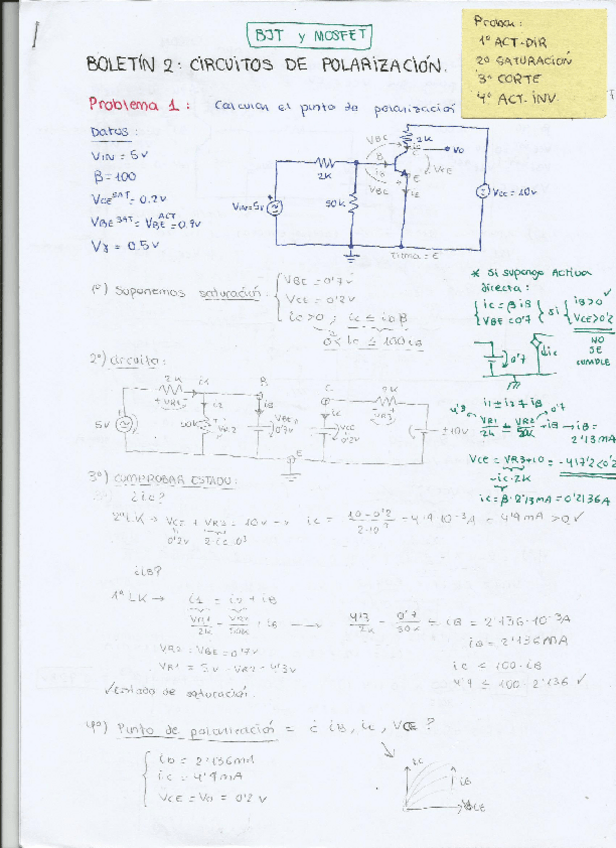 BJT y MOSFET
Probar:
1º ACT-DIR
2º SATURACIÓN
3º CORTE
4º ACT. INV
BOLETÍN 2: CIRCUITOS DE POLARIZACIÓN.
Problema 1: Calcular el punto de polarización
Datos:
VIN = 5V
β = 100
VCE SAT = 0.2V
VBE SAT = VBE ACT = 0.7V
Vγ = 0.5V
2K
VBC
ic
C
Vo
B
iB
VCE
2K
E
VBE
iE
50K
VIN=5V
VCC = 10V
TIERRA = E
1º) Suponemos saturación.
VBE = 0'7V
VCE = 0'2V
ic > 0 ; ic ≤ iB β
0 < ic ≤ 100 iB
* Si supongo Activa
directa:
ic = β iB
VBE = 0'7
si
iB > 0 ✓
VCE > 0'2
NO
SE
CUMPLE
0'7
βic
2º) Circuito:
2K
i1
B
C
2K
VR1
i2
iB
ic
VR3
5V
50K
VR2
VBE
0'7V
VCE
0'2V
10V
E
i1 = i2 + iB
4'3
0'7
VR1/2K = VR2/50K + iB → iB =
2'13mA
VCE = VR3+10 = -417'2 < 0'2
-ic·2K
ic = β·2'13mA = 0'2136A
3º) COMPROBAR ESTADO:
¿ic?
2ª LK → VCE + VR3 = 10V → ic = (10-0'2)/(2·10³) = 4'9·10⁻³A = 4'9mA > 0 ✓
0'2V 2·ic·10³
¿iB?
1ª LK → i1 = i2 + iB
VR1/2K = VR2/50K + iB → 4'3/2K - 0'7/50K = iB = 2'136·10⁻³A
iB = 2'136mA
VR2 = VBE = 0'7V
VR1 = 5V - VR2 = 4'3V
ic ≤ 100·iB
4'9 ≤ 100·2'136 ✓
✓ Estado de saturación.
4º) Punto de polarización = ¿iB, ic, VCE?
iB = 2'136mA
ic = 4'9mA
VCE = Vo = 0'2V
ic
iB
VCE